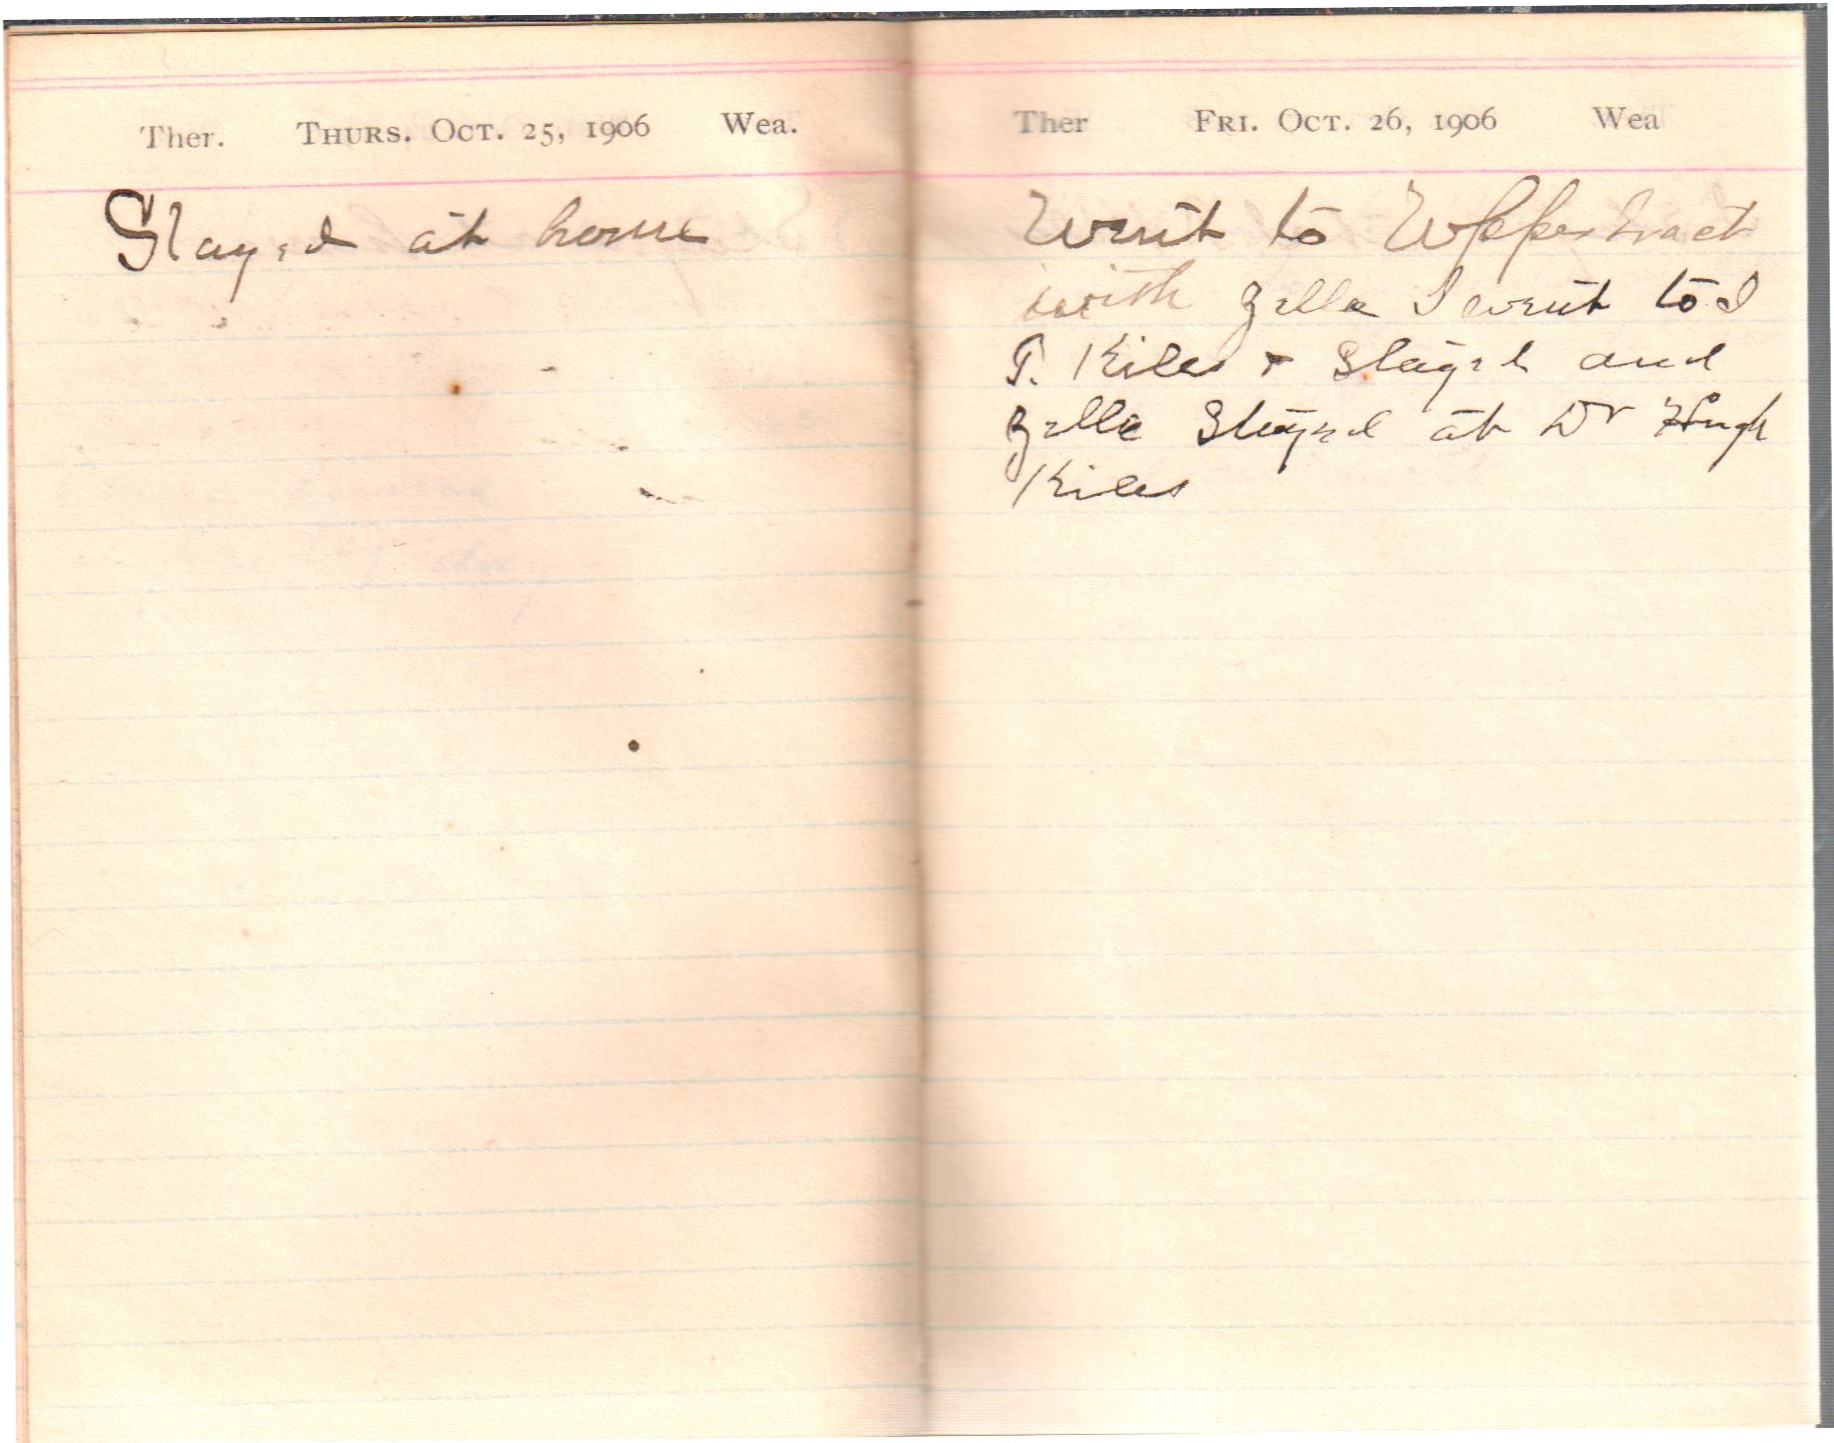 Ther. THURS. OCT. 25, 1906 Wea.
Stayed at home
Ther FRI. OCT. 26, 1906 Wea
Went to Uppertract
with Zella I went to I
T. Kiles + Stayed and
Zella Stayed at Dr Hugh
Kiles